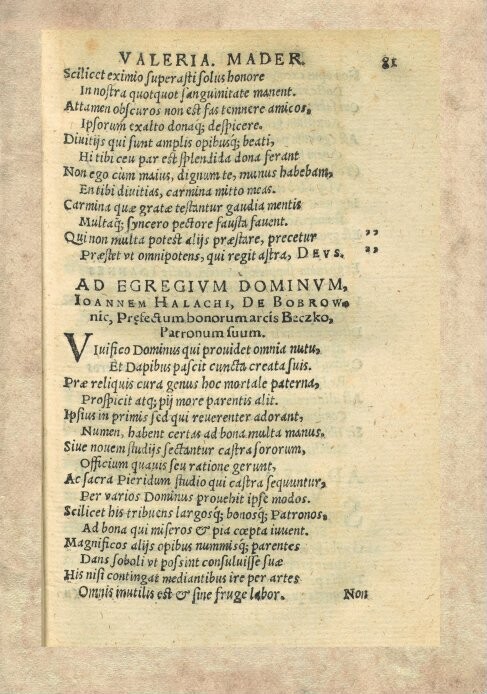 VALERIA. MADER. 81
Scilicet eximio superasti solus honore
In nostra quotquot sanguinitate manent.
Attamen obscuros non est fas temnere amicos,
Ipsorum exalto donaq; despicere.
Diuitijs qui sunt amplis opibusq; beati,
Hi tibi ceu par est splendida dona ferant
Non ego cùm maius, dignum te, munus habebam,
En tibi diuitias, carmina mitto meas.
Carmina quæ gratæ testantur gaudia mentis
Multaq; syncero pectore fausta fauent.
Qui non multa potest alijs præstare, precetur ,,
Præstet vt omnipotens, qui regit astra, DEVS. ,,
AD EGREGIVM DOMINVM,
IOANNEM HALACHI, DE BOBROW-
nic, Pręfectum bonorum arcis Beczko,
Patronum suum.
VIuifico Dominus qui prouidet omnia nutu,
Et Dapibus pascit cuncta creata suis.
Præ reliquis cura genus hoc mortale paterna,
Prospicit atq; pij more parentis alit.
Ipsius in primis sed qui reuerenter adorant,
Numen, habent certas ad bona multa manus.
Siue nouem studijs sectantur castra sororum,
Officium quauis seu ratione gerunt,
Ac sacra Pieridum studio qui castra sequuntur,
Per varios Dominus prouehit ipse modos.
Scilicet his tribuens largosq; bonosq; Patronos,
Ad bona qui miseros & pia cœpta iuuent.
Magnificos alijs opibus nummisq; parentes
Dans soboli vt possint consuluisse suæ
His nisi contingat mediantibus ire per artes
Omnis inutilis est & sine fruge labor. Non